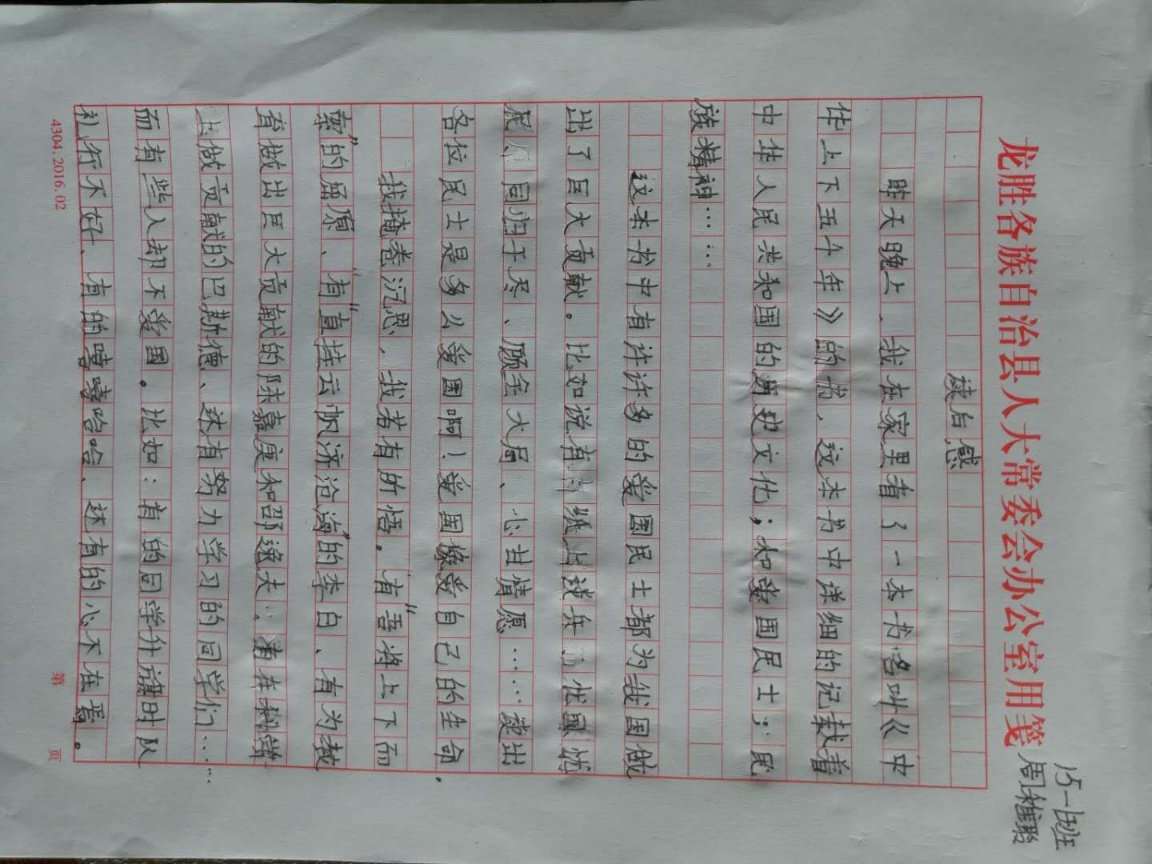 龙胜各族自治县人大常委会办公室用笺
151班
周
读后感
昨天晚上，我在家里看了一本书名叫《中
华上下五千年》的书，这本书中详细的记载着
中华人民共和国的历史文化；和爱国民士；民
族精神……
这本书中有许许多的爱国民士都为我国做
出了巨大贡献。比如说有纸上谈兵忧国忧
民同归于尽、顾全大局、心甘情愿……突出
各位民士是多么爱国啊！爱国像爱自己的生命。
我掩卷沉思，我若有所悟。有“吾将上下而
索”的屈原、有“直挂云帆济沧海”的李白、有为教
育做出巨大贡献的陈嘉庚和邵逸夫；有在科学
上做贡献的巴斯德、还有努力学习的同学们……
而有些人却不爱国。比如：有的同学升旗时队
礼行不好、有的嘻嘻哈哈、还有的心不在焉。
4304.2016.02
第 页